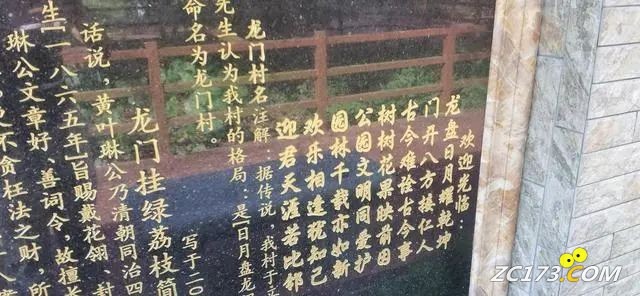 欢迎光临:
龙盘日月耀乾坤
门开八方接仁人
古今难诠古今事
树树花果映前因
公园文明同爱护
园林千载亦如新
欢乐相逢说知己
迎君天涯若比邻
龙门村名注解:据传说,我村于
先生认为我村的格局:是「日月盘龙
命名为龙门村。
写于二〇
龙门挂绿荔枝简
话说,黄叶琳公乃清朝同治四
生「一八六五年」旨赐戴花翎、封
琳公文章好、善词令,故擅长
不贪枉法之财,所
ZC173.com